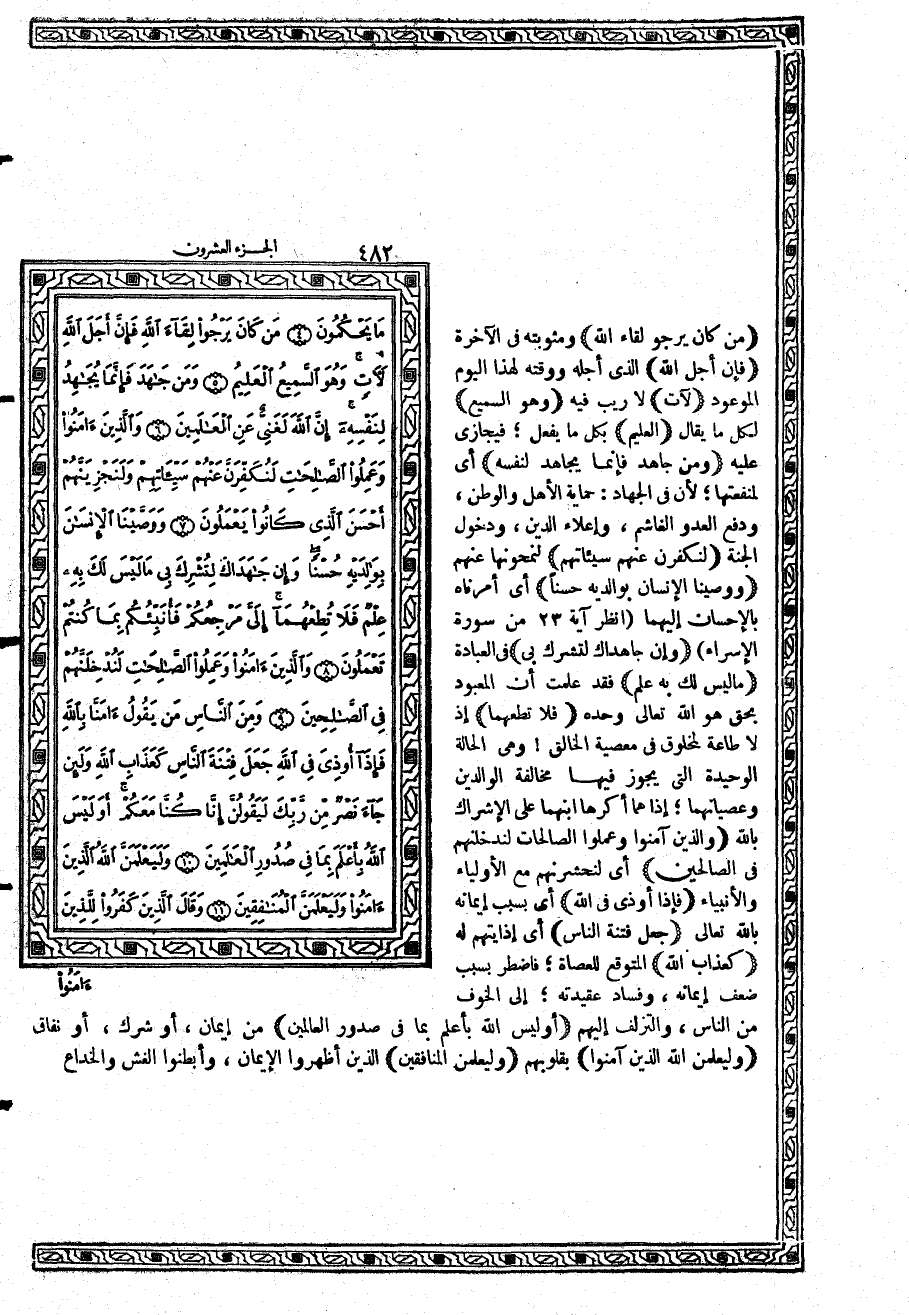 ٤٨٢
الجزء العشرون
مَا يَحْكُمُونَ ٤ مَن كَانَ يَرْجُوا۟ لِقَآءَ ٱللَّهِ فَإِنَّ أَجَلَ ٱللَّهِ
لَـَٔاتٍ ۚ وَهُوَ ٱلسَّمِيعُ ٱلْعَلِيمُ ٥ وَمَن جَـٰهَدَ فَإِنَّمَا يُجَـٰهِدُ
لِنَفْسِهِۦٓ ۚ إِنَّ ٱللَّهَ لَغَنِىٌّ عَنِ ٱلْعَـٰلَمِينَ ٦ وَٱلَّذِينَ ءَامَنُوا۟
وَعَمِلُوا۟ ٱلصَّـٰلِحَـٰتِ لَنُكَفِّرَنَّ عَنْهُمْ سَيِّـَٔاتِهِمْ وَلَنَجْزِيَنَّهُمْ
أَحْسَنَ ٱلَّذِى كَانُوا۟ يَعْمَلُونَ ٧ وَوَصَّيْنَا ٱلْإِنسَـٰنَ
بِوَٰلِدَيْهِ حُسْنًا ۖ وَإِن جَـٰهَدَاكَ لِتُشْرِكَ بِى مَا لَيْسَ لَكَ بِهِۦ
عِلْمٌ فَلَا تُطِعْهُمَآ ۚ إِلَىَّ مَرْجِعُكُمْ فَأُنَبِّئُكُم بِمَا كُنتُمْ
تَعْمَلُونَ ٨ وَٱلَّذِينَ ءَامَنُوا۟ وَعَمِلُوا۟ ٱلصَّـٰلِحَـٰتِ لَنُدْخِلَنَّهُمْ
فِى ٱلصَّـٰلِحِينَ ٩ وَمِنَ ٱلنَّاسِ مَن يَقُولُ ءَامَنَّا بِٱللَّهِ
فَإِذَآ أُوذِىَ فِى ٱللَّهِ جَعَلَ فِتْنَةَ ٱلنَّاسِ كَعَذَابِ ٱللَّهِ وَلَئِن
جَآءَ نَصْرٌ مِّن رَّبِّكَ لَيَقُولُنَّ إِنَّا كُنَّا مَعَكُمْ ۚ أَوَلَيْسَ
ٱللَّهُ بِأَعْلَمَ بِمَا فِى صُدُورِ ٱلْعَـٰلَمِينَ ١٠ وَلَيَعْلَمَنَّ ٱللَّهُ ٱلَّذِينَ
ءَامَنُوا۟ وَلَيَعْلَمَنَّ ٱلْمُنَـٰفِقِينَ ١١ وَقَالَ ٱلَّذِينَ كَفَرُوا۟ لِلَّذِينَ
ءَامَنُوا۟
(من كان يرجو لقاء الله) ومثوبته فى الآخرة
(فإن أجل الله) الذى أجله ووقته لهذا اليوم
الموعود (لآت) لا ريب فيه (وهو السميع)
لكل ما يقال (العليم) بكل ما يفعل ؛ فيجازى
عليه (ومن جاهد فإنما يجاهد لنفسه) أى
لمنفعتها ؛ لأن فى الجهاد : حماية الأهل والوطن ،
ودفع العدو الغاشم ، وإعلاء الدين ، ودخول
الجنة (لنكفرن عنهم سيئاتهم) لنمحونها عنهم
(ووصينا الإنسان بوالديه حسناً) أى أمرناه
بالإحسان إليهما (انظر آية ٢٣ من سورة
الإسراء) (وإن جاهداك لتشرك بى) فى العبادة
(ماليس لك به علم) فقد علمت أن المعبود
بحق هو الله تعالى وحده (فلا تطعهما) إذ
لا طاعة لمخلوق فى معصية الخالق ! وهى الحالة
الوحيدة التى يجوز فيها مخالفة الوالدين
وعصيانهما ؛ إذا هما أكرها ابنهما على الإشراك
بالله (والذين آمنوا وعملوا الصالحات لندخلنهم
فى الصالحين) أى لنحشرنهم مع الأولياء
والأنبياء (فإذا أوذى فى الله) أى بسبب إيمانه
بالله تعالى (جعل فتنة الناس) أى إذايتهم له
(كعذاب الله) المتوقع للعصاة ؛ فاضطر بسبب
ضعف إيمانه ، وفساد عقيدته ؛ إلى الخوف
من الناس ، والتزلف إليهم (أوليس الله بأعلم بما فى صدور العالمين) من إيمان ، أو شرك ، أو نفاق
(وليعلمن الله الذين آمنوا) بقلوبهم (وليعلمن المنافقين) الذين أظهروا الإيمان ، وأبطنوا الغش والخداع